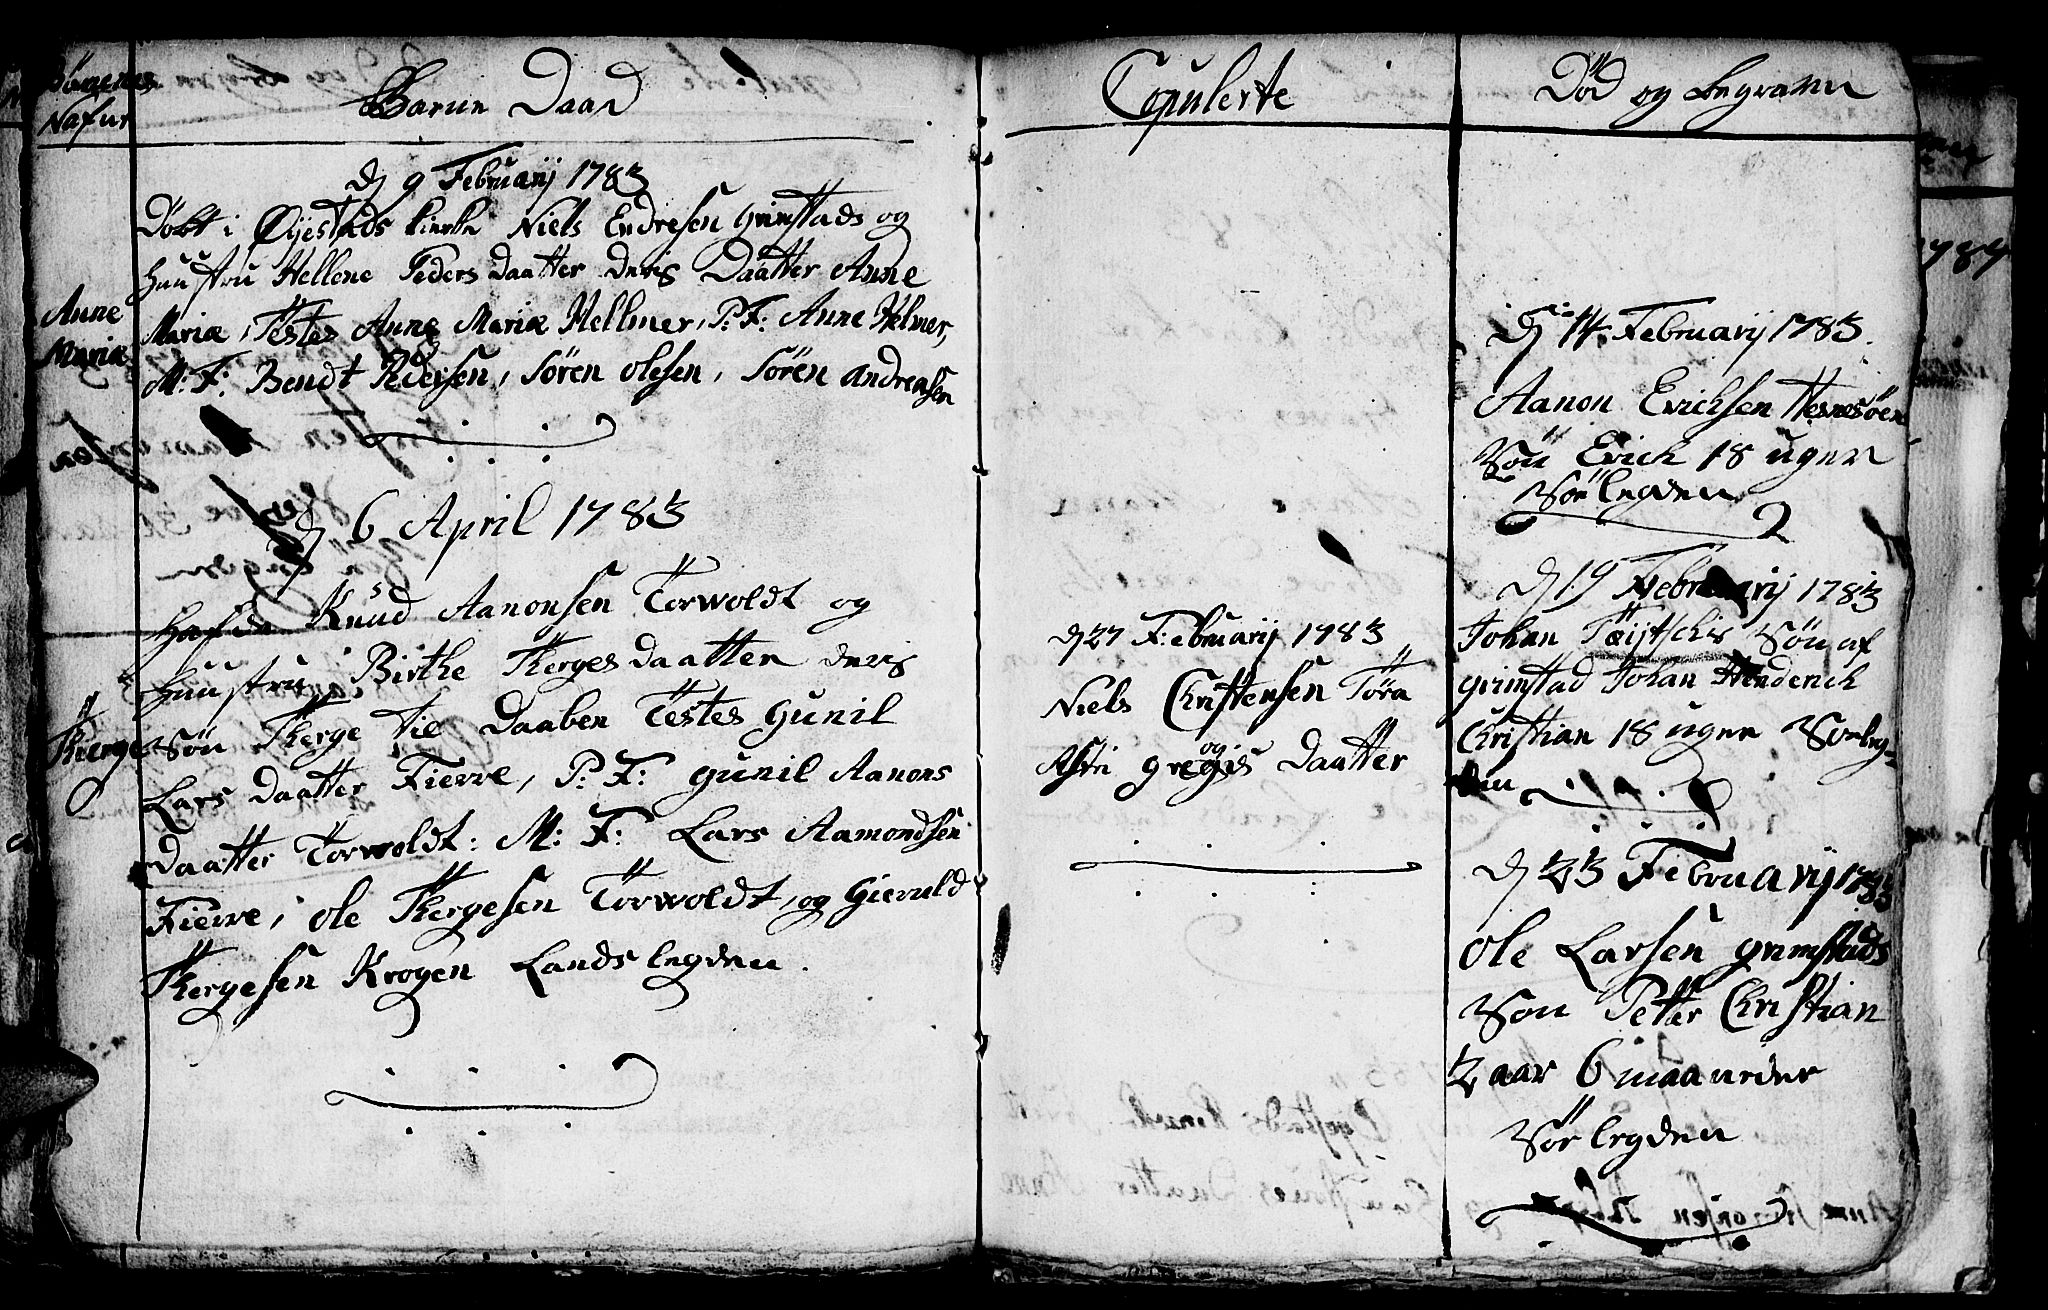 Børnenes
Nafne
Barne Daab
D 9 Februarij 1783
Døbt i Øyestads kirke Niels Endresen grimstads og
huustru Hellene Peders daatter deris Daatter Anne
Anne
Maria
Mariæ, Testes Anne Mariæ Hellmer, P: F: Anne Helmer,
M: F: Bendt Pedersen, Sören olesen, Sören andreasen
D 6 April 1783
Hafde Knud Aanonsen Torwoldt og
huustru Birthe Tergesdaatter deris
Tierge
Søn Terge til Daaben Testes gunil
Lars daatter Fierre, P: F: gunil Aanons
daatter Torwoldt: M: F: Lars Aamondsen
Fierre, ole Tergesen Torwoldt, og Gieruld
Tergesen Krogen Landslegden.
Copulerte
D 27 Februarij 1783
Niels Christensen Töra
og
Astri gregis Daatter
Död og begraven
D 14 Februarij 1783.
Aanon Erichsen Hesnesøen
Sön Erich 18 uger
Sörlegden
2
D 19 Februarij 1783
Johan Sön af
grimstad Johan Henderich
Christian 18 uger Sørleg-
den
D 23 Februarij 1783
ole Larsen grimstads
Søn Petter Christian
2 aar 6 maaneder
Sör legden
1784